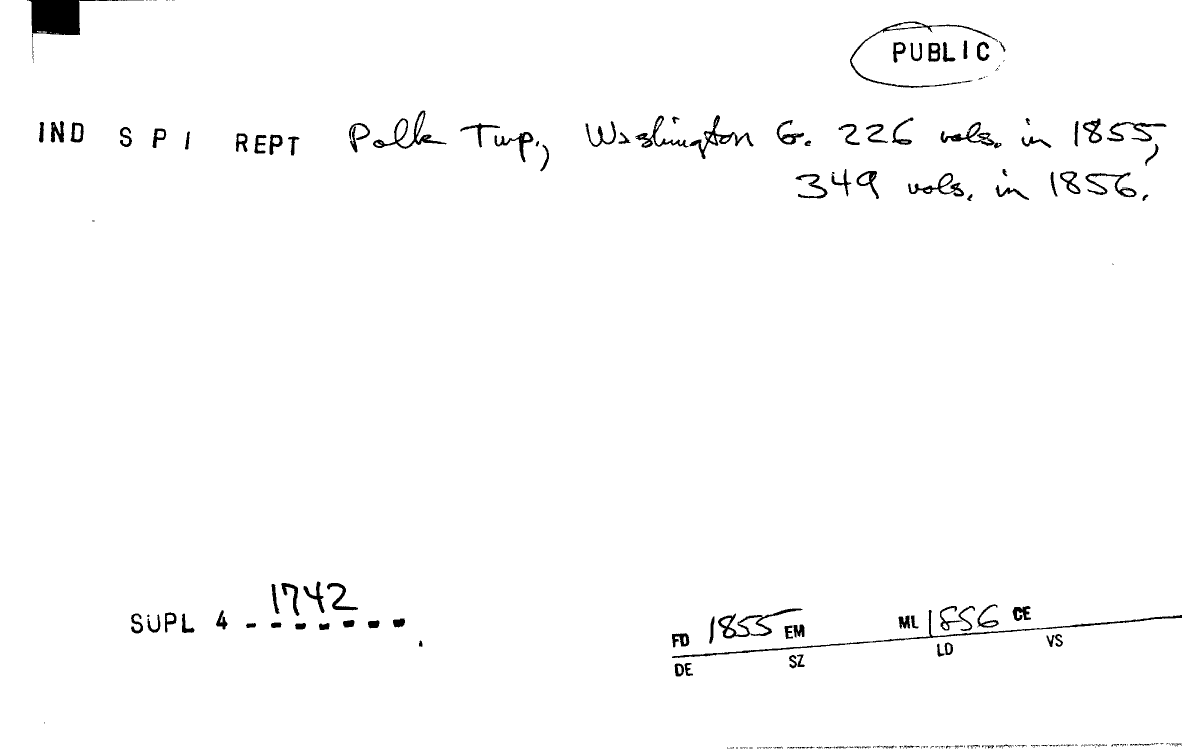 PUBLIC
IND S P I REPT Polk Twp., Washington Co. 226 vols. in 1855,
349 vols. in 1856.
SUPL 4 - 1742
FD 1855 EM ML 1856 CE
DE SZ LD VS